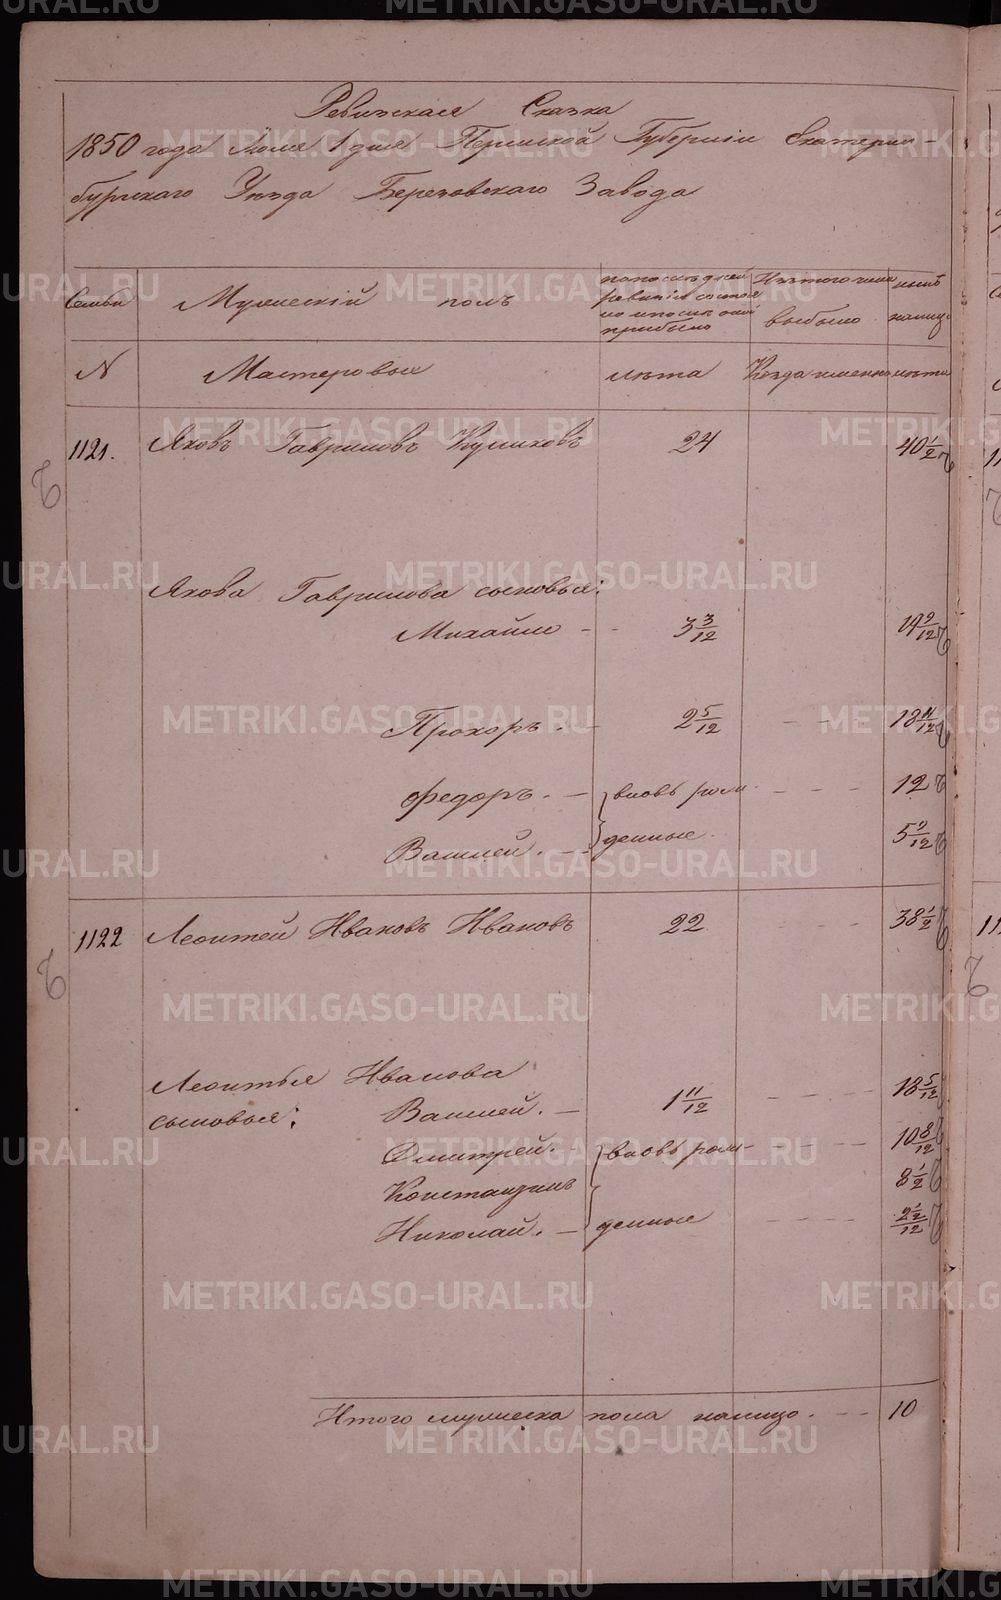 Ревизская Сказка
1850 года Июля 1 дня Пермской Губернiи Екатерин-
бургскаго Уѣзда Березовскаго Завода
Семьи
Мужескiй полъ
по послѣдней
ревизiи состоя
ло и послѣ оной
прибыло
Изъ того числа
выбыло
нынѣ
налицо
N
Мастеровые
лѣта
Когда именно
лѣта
1121. Яковъ Гавриловъ Куликовъ 24 40 1/2
Якова Гаврилова сыновья:
Михайло - - 3 3/12 19 9/12
Прохоръ. - 2 5/12 - - 18 11/12
Федоръ. - вновь рож- - - - 12
Василей. - денные. 5 9/12
1122 Леонтей Ивановъ Ивановъ 22 - - - 38 1/2
Леонтья Иванова
сыновья: Василей. - 1 11/12 - - - 18 5/12
Дмитрей. - вновь рож- - - 10 8/12
Константинъ 8 1/2
Николай. - денные - - - 2 2/12
Итого мужеска пола налицо. - - 10
METRIKI.GASO-URAL.RU